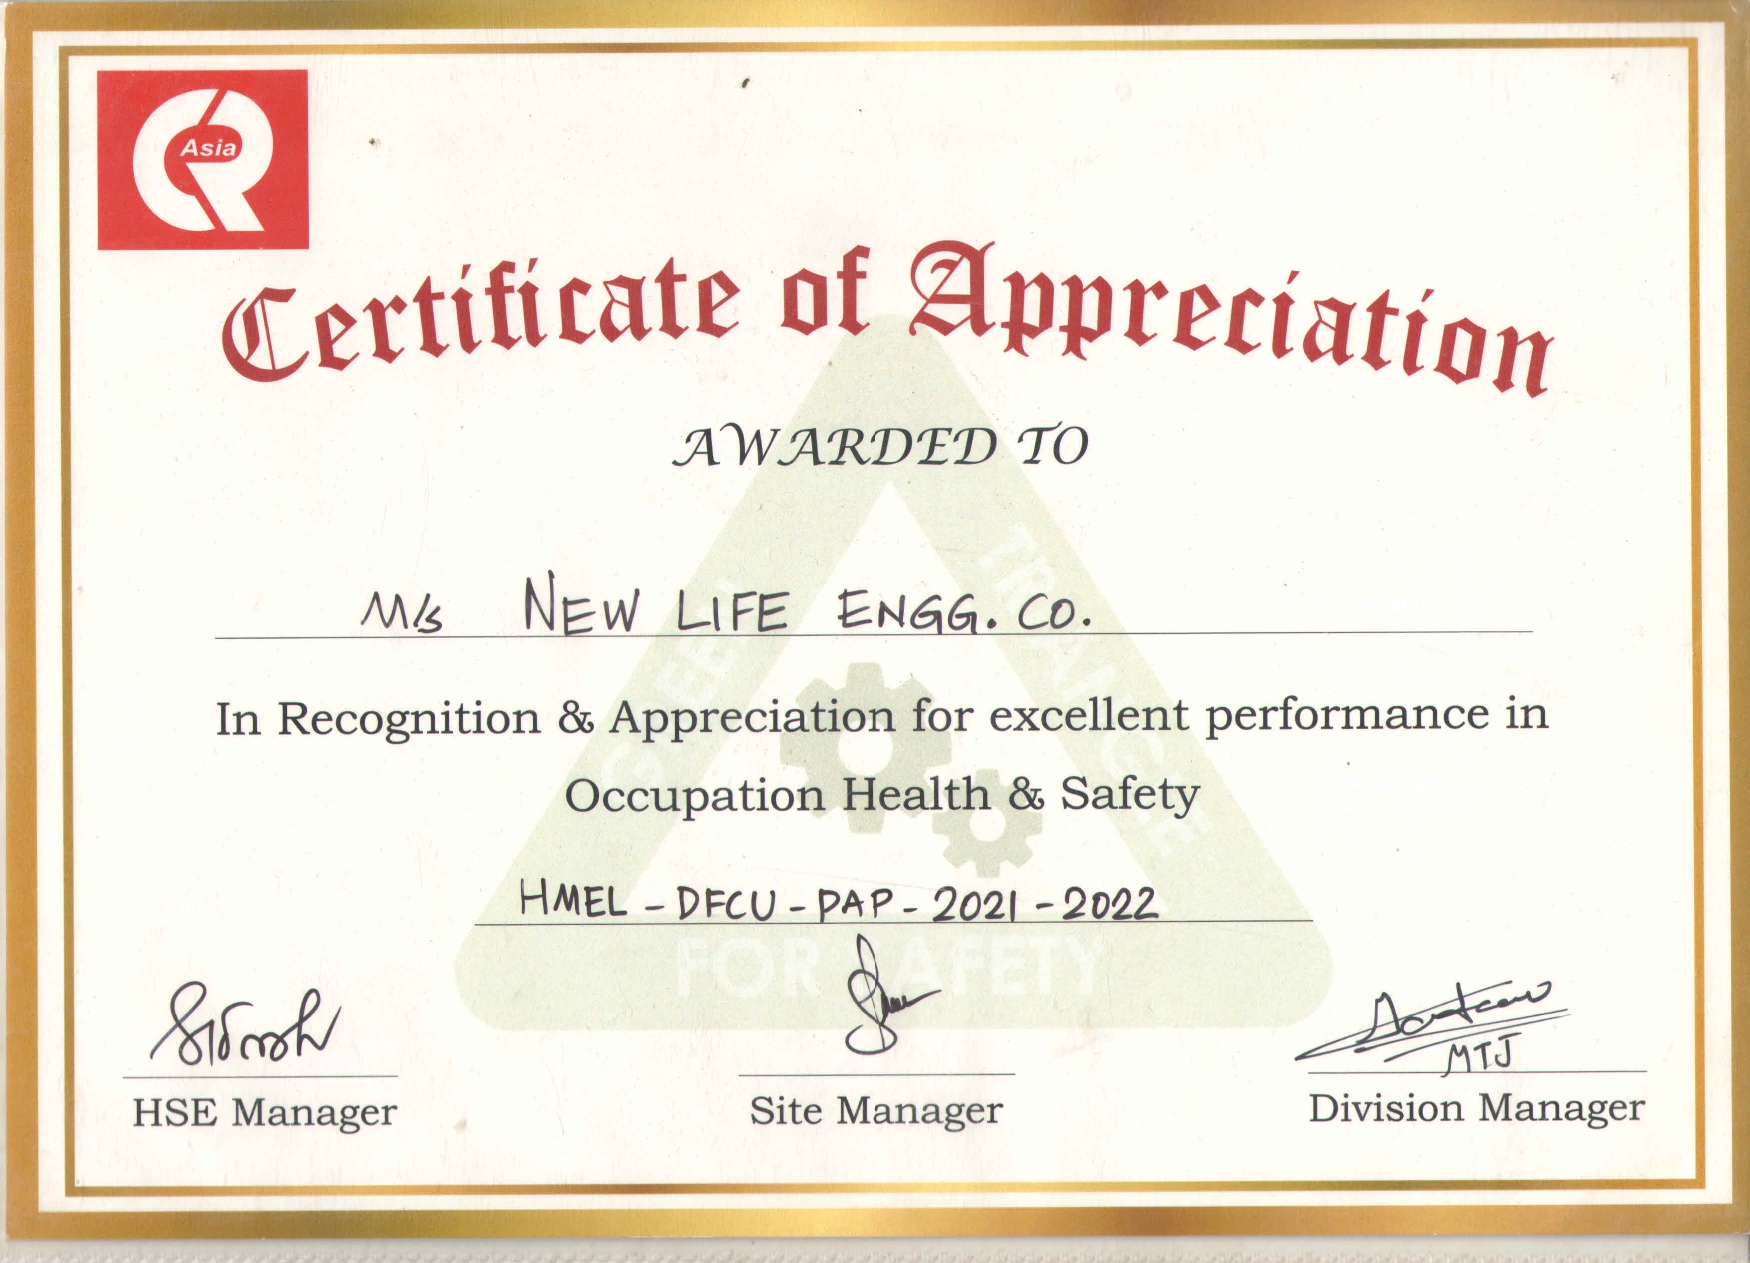 CR Asia
Certificate of Appreciation
AWARDED TO
M/s NEW LIFE ENGG. CO.
In Recognition & Appreciation for excellent performance in
Occupation Health & Safety
HMEL - DFCU - PAP - 2021 - 2022
GREEN TRIANGLE
FOR SAFETY
MTJ
HSE Manager Site Manager Division Manager